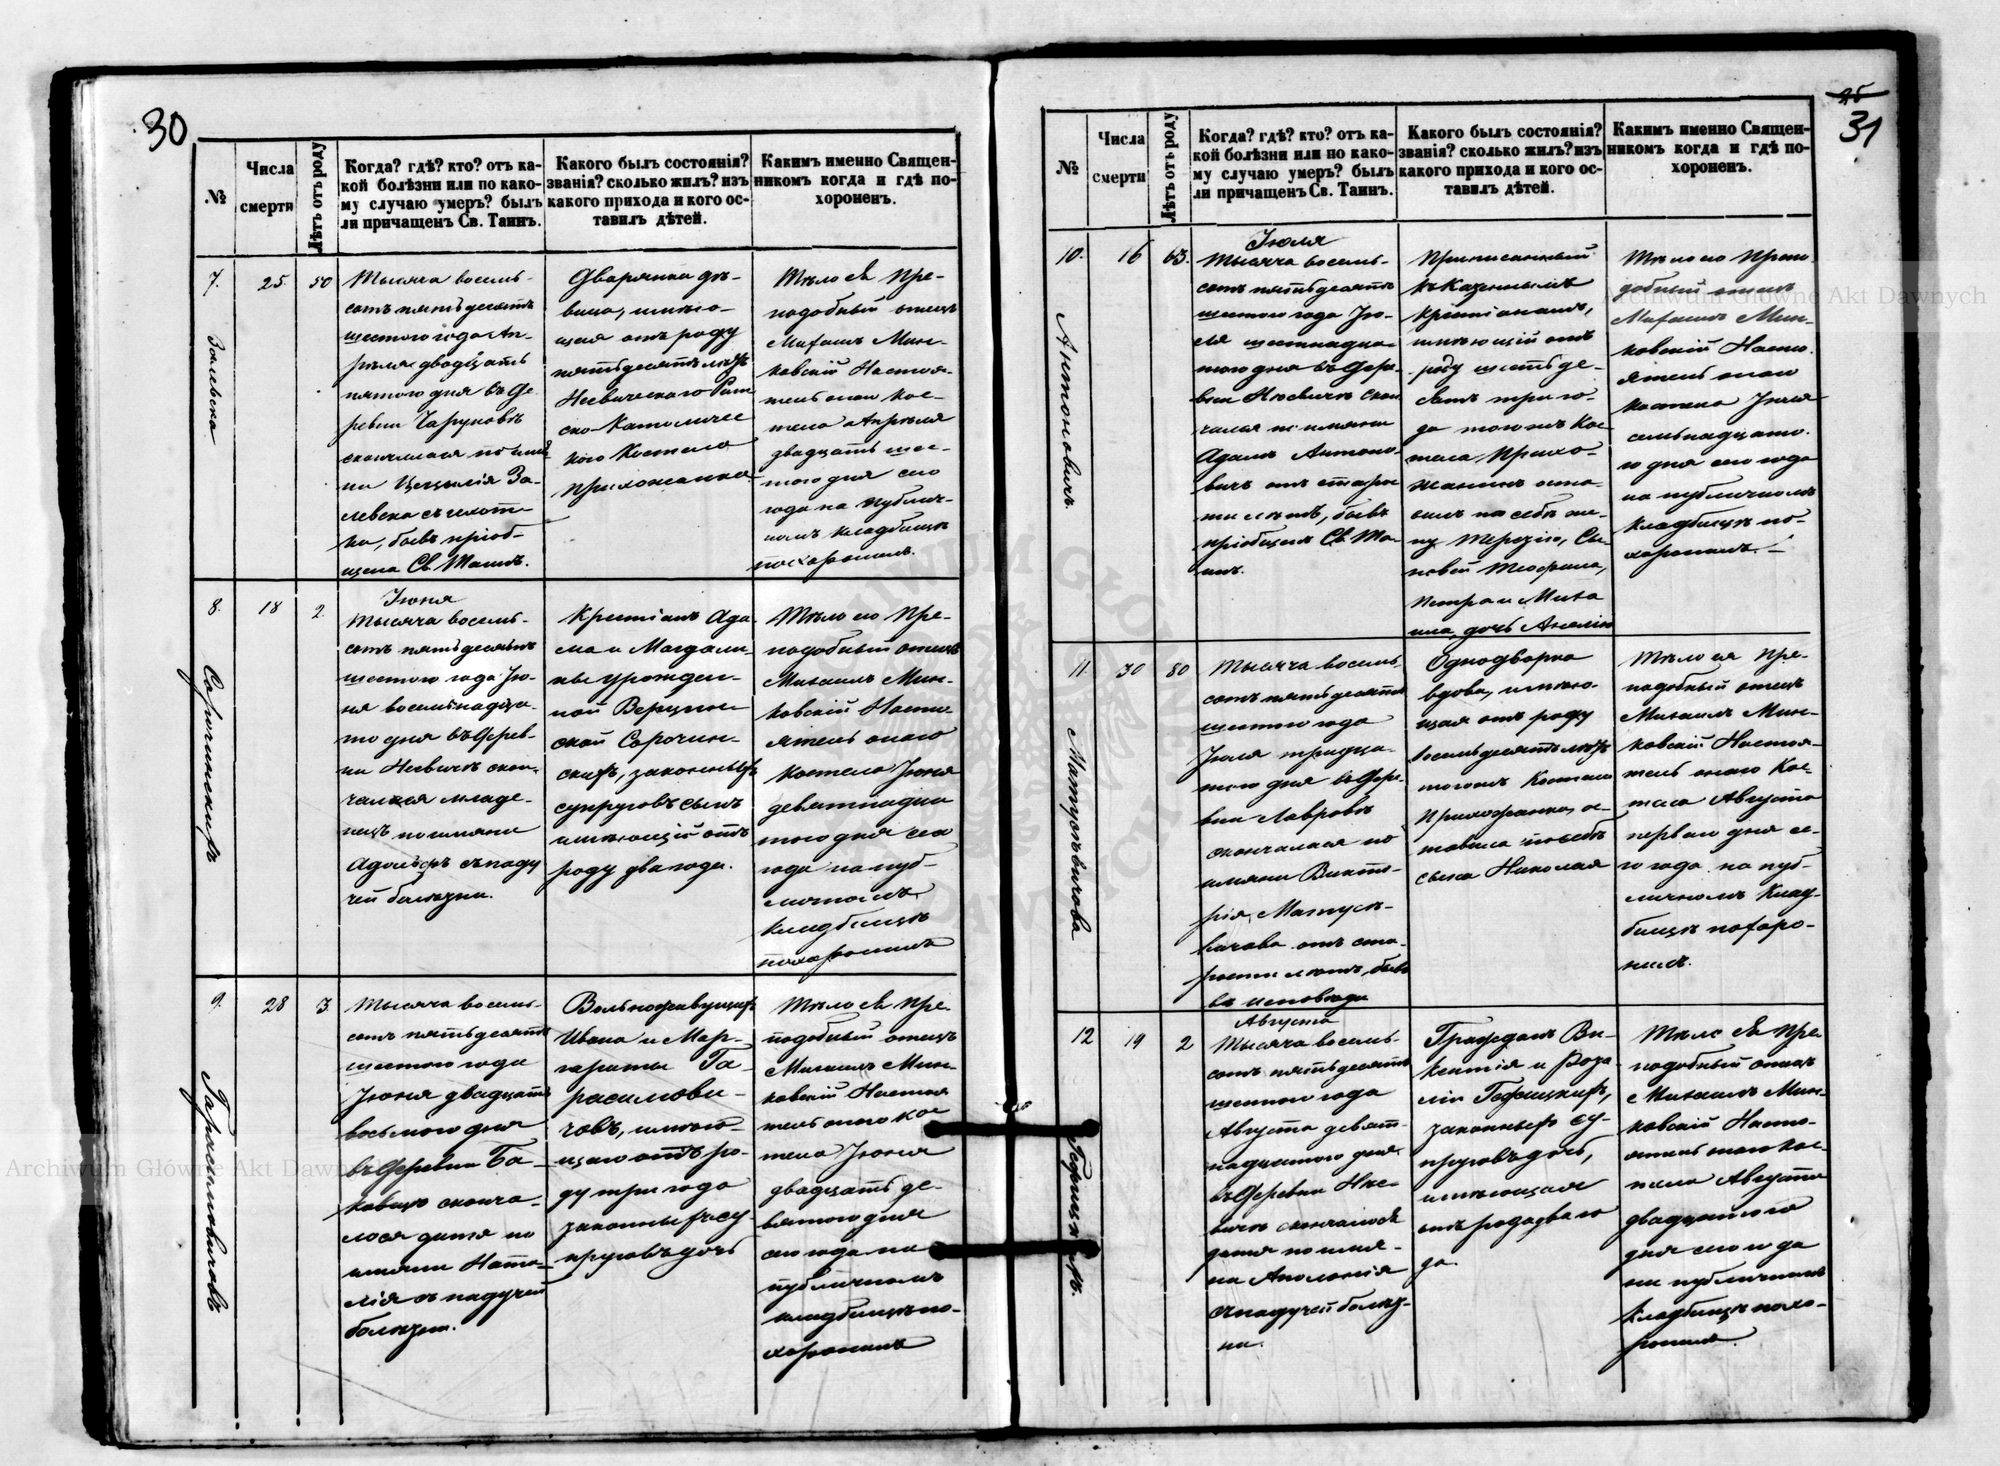 30
№
Числа
смерти
Лѣтъ отъ роду
Когда? гдѣ? кто? отъ ка-
кой болѣзни или по како-
му случаю умеръ? былъ
ли причащенъ Св. Таинъ.
Какого былъ состоянія?
званія? сколько жилъ? изъ
какого прихода и кого ос-
тавилъ дѣтей.
Какимъ именно Священ-
никомъ когда и гдѣ по-
хороненъ.
7.
Залевска
25
50
Тысяча восемь-
сотъ пятьдесятъ
шестого года Ап-
рѣля двадцать
пятого дня въ де
ревни Чаруковъ
скончалася по име
ни Цецылія За-
левска съ
ки, бывъ пріоб-
щена Св. Таинъ.
Дворянка дѣ-
вица, имѣю-
щая отъ роду
пятьдесятъ лѣтъ
Несвическаго Рим
ско-Католичес
кого Костела
прихожанка
Тѣло ея Пре-
подобный отецъ
Михаилъ Мин-
ковскій Настоя-
тель онаго Кос-
тела Апрѣля
двадцать шес-
того дня сего
года на публич-
номъ кладбищѣ
похоронилъ.
8.
Сорочинскихъ
18
2.
Іюня
Тысяча восемь-
сотъ пятьдесятъ
шестого года Ію-
ня восемнадца-
то дня въ дерев-
ни Несвичъ скон-
чался младе-
нецъ по имяни
Адольфъ съ паду
чей болѣзни.
Крестіанъ Ада-
ма и Магдали-
ны урожден-
ной Верцин-
ской Сорочин-
скихъ, законныхъ
супруговъ сынъ
имѣющій отъ
роду два года.
Тѣло его Пре-
подобный отецъ
Михаилъ Мин-
ковскій Насто
ятель онаго
Костела Іюня
девятнадца
того дня сего
года на пуб-
личномъ
кладбищѣ
похоронилъ
9.
Гарасимовичовъ
28
3.
Тысяча восемь-
сотъ пятьдесятъ
шестого года
Іюня двадцать
восьмого дня
въ деревни Ба-
ковцѣ сконча-
лося дитя по
имяни Ната-
лія съ падучей
болѣзни.
Вольноживущихъ
Ивана и Мар-
гариты Га-
расимови-
човъ, имѣю-
щаго отъ ро-
ду три года
законныхъ су
пруговъ дочь
Тѣло ея Пре-
подобный отецъ
Михаилъ Мин-
ковскій Настоя
тель онаго Кос
тела Іюня
двадцать де-
вятого дня
сего года на
публичномъ
кладбищѣ по-
хоронилъ
31
№
Числа
смерти
Лѣтъ отъ роду
Когда? гдѣ? кто? отъ ка-
кой болѣзни или по како-
му случаю умеръ? былъ
ли причащенъ Св. Таинъ.
Какого былъ состоянія?
званія? сколько жилъ? изъ
какого прихода и кого ос-
тавилъ дѣтей.
Какимъ именно Священ-
никомъ когда и гдѣ по-
хороненъ.
10.
Антоновичъ
16
63.
Іюля
Тысяча восемь-
сотъ пятьдесятъ
шестого года Ію-
ля шестнадца-
того дня въ дере-
вни Несвичъ скон
чался по имяни
Адамъ Антоно-
вичъ отъ старос
ти лѣтъ, бывъ
пріобщенъ Св. Та-
инъ.
Приписанный
къ Казеннымъ
крѣстіанамъ,
имѣющій отъ
роду шестьде-
сятъ три го-
да тогожъ Кос
тела Прихо-
жанинъ оста-
вилъ по себѣ же-
ну Терезію, Сы-
новей Теофила,
Петра и Миха
ила дочь Анелію
Тѣло его Препо
добный отецъ
Михаилъ Мин-
ковскій Насто
ятель онаго
Костела Іюля
семьнадцато
го дня сего года
на публичномъ
кладбищѣ по-
хоронилъ.
11.
Матусѣвичова
30
80
Тысяча восемь-
сотъ пятьдесятъ
шестого года
Іюля тридца-
того дня въ дере-
вни Лавровъ
скончалася по
имяни Викто-
рія Матусѣ-
вичова отъ ста-
рости лѣтъ, бывъ
въ исповѣди
Однодворка
вдова, имѣю-
щая отъ роду
восемьдесятъ лѣтъ
тогожъ Костела
прихожанка, ос-
тавила по себѣ
сына Николая
Тѣло ея Пре-
подобный отецъ
Михаилъ Мин-
ковскій Настоя-
тель онаго Кос-
тела Августа
первого дня се-
го года на пуб-
личномъ клад-
бищѣ похоро-
нилъ.
12
19
2
Августа
Тысяча восемь-
сотъ пятьдесятъ
шестого года
Августа девят-
надцатого дня
въ деревни Нес-
вичъ скончалось
дитя по имя-
ни Аполонія
съ падучей болѣз-
ни.
Гражданъ Ви-
кентія и Роза
ліи
законныхъ су-
пруговъ дочь,
имѣющая
отъ рода два го
да.
Тѣло ея Пре
подобный отецъ
Михаилъ Мин-
ковскій Насто-
ятель онаго Кос-
тела Августа
двадцатого
дня сего года
на публичномъ
кладбищѣ похо-
ронилъ.
Archiwum Główne Akt Dawnych
Archiwum Główne Akt Dawnych